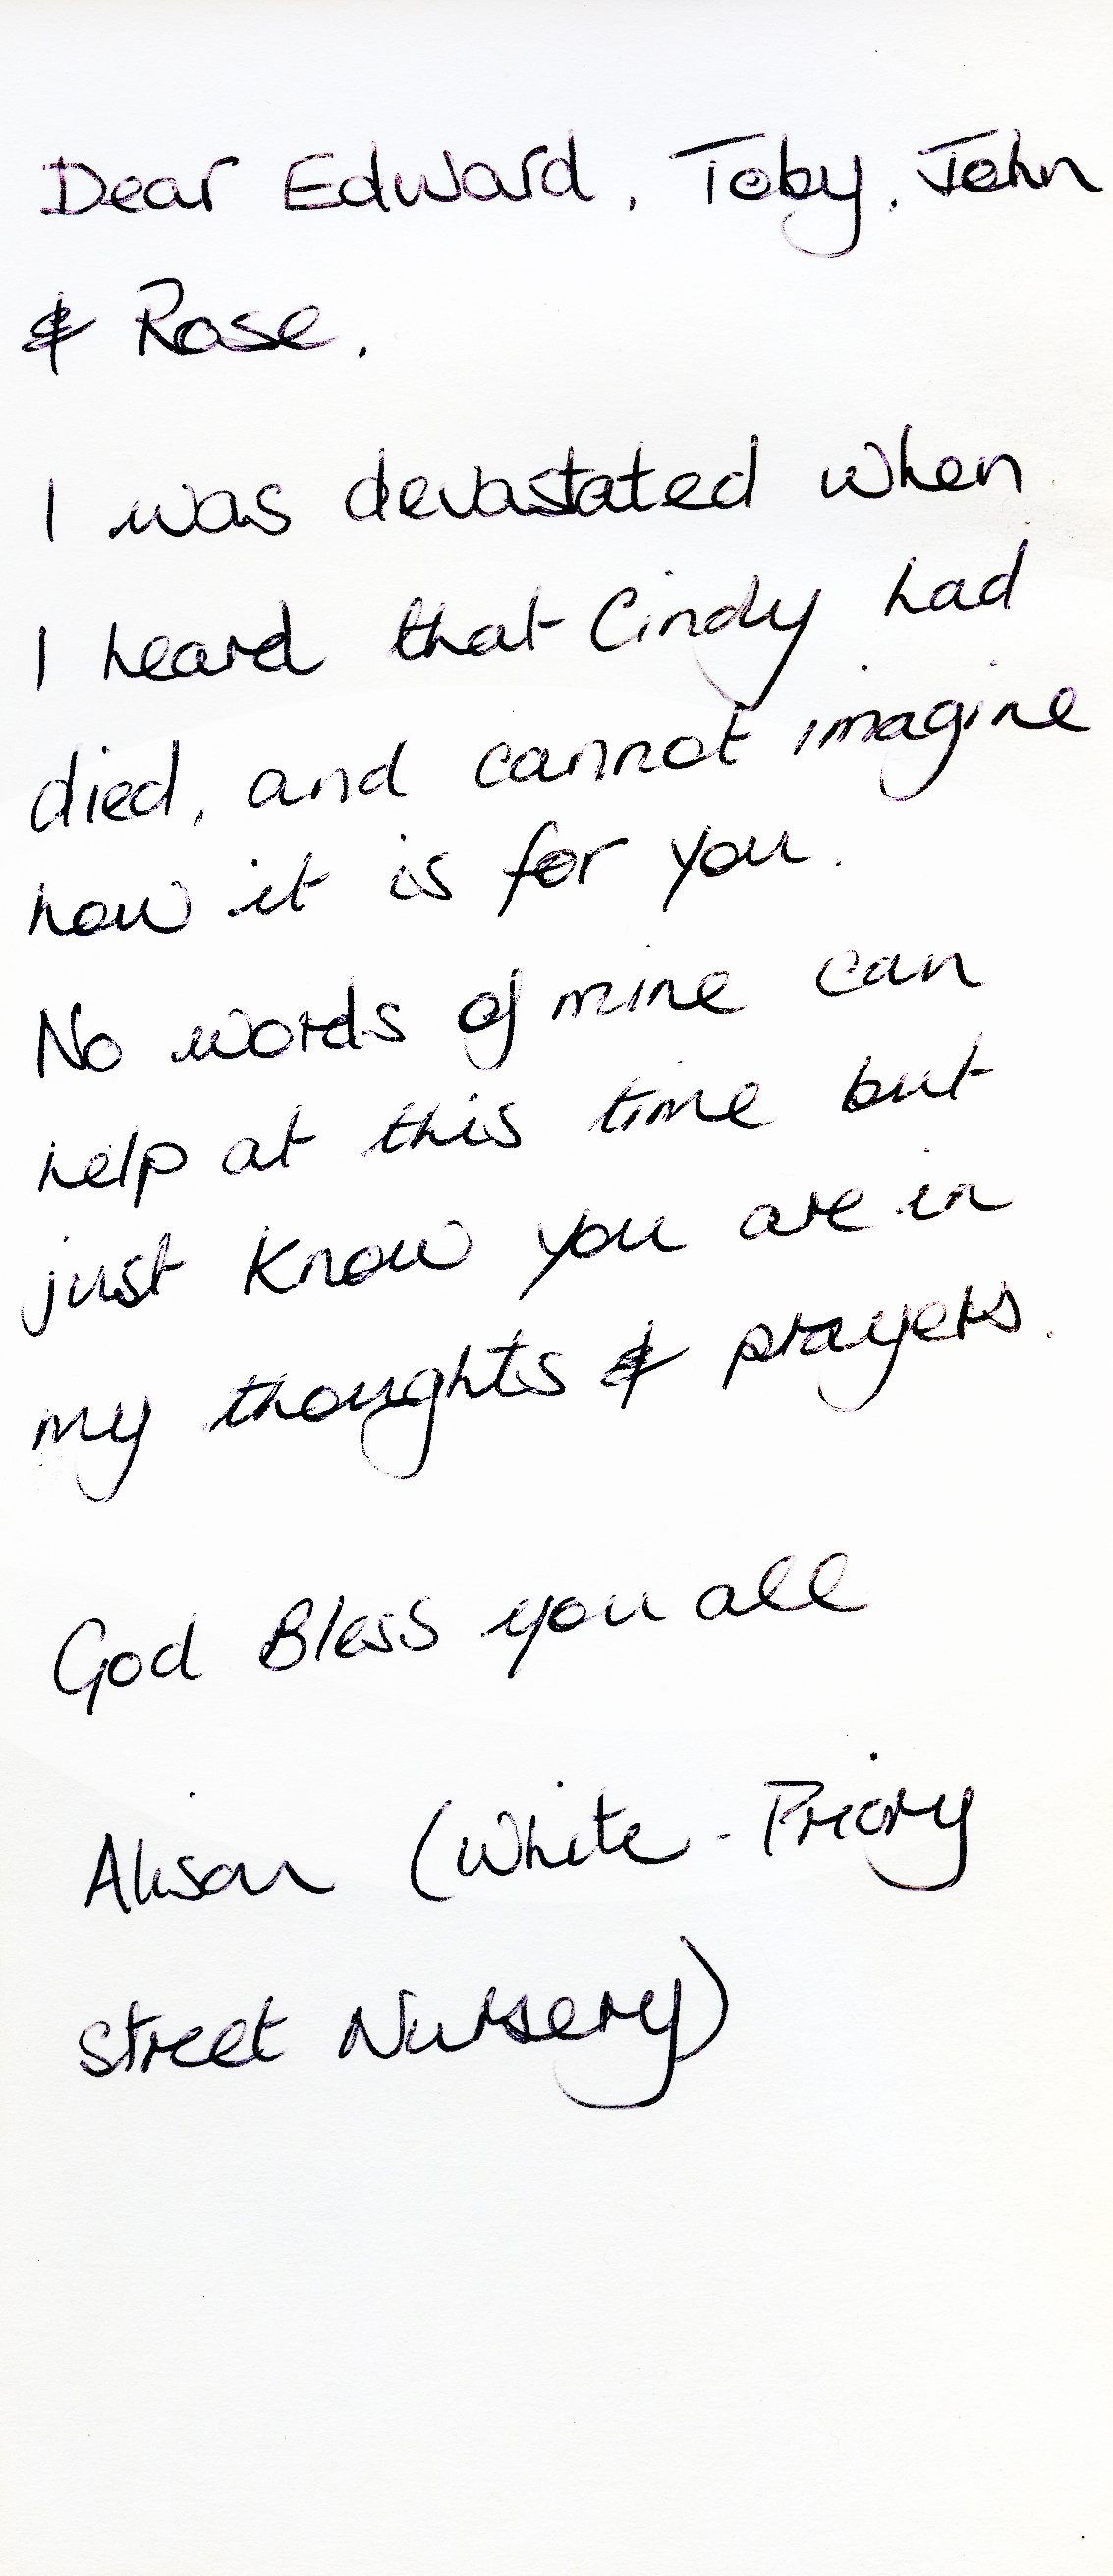 Dear Edward, Toby, John
& Rose.
I was devastated when
I heard that Cindy had
died, and cannot imagine
how it is for you.
No words of mine can
help at this time but
just know you are in
my thoughts & prayers.
God Bless you all
Alison (White - Priory
Street Nursery)